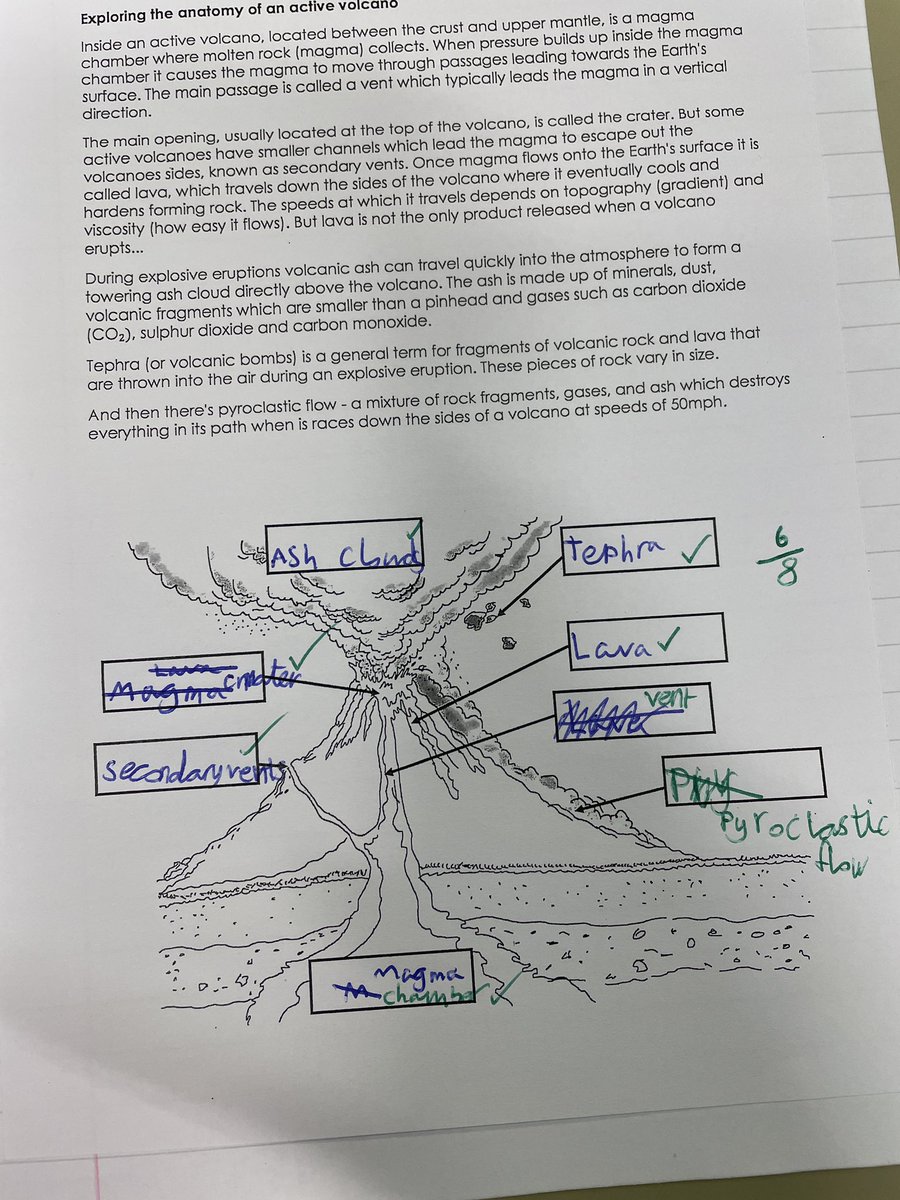 Exploring the anatomy of an active volcano
Inside an active volcano, located between the crust and upper mantle, is a magma
chamber where molten rock (magma) collects. When pressure builds up inside the magma
chamber it causes the magma to move through passages leading towards the Earth's
surface. The main passage is called a vent which typically leads the magma in a vertical
direction.
The main opening, usually located at the top of the volcano, is called the crater. But some
active volcanoes have smaller channels which lead the magma to escape out the
volcanoes sides, known as secondary vents. Once magma flows onto the Earth's surface it is
called lava, which travels down the sides of the volcano where it eventually cools and
hardens forming rock. The speeds at which it travels depends on topography (gradient) and
viscosity (how easy it flows). But lava is not the only product released when a volcano
erupts...
During explosive eruptions volcanic ash can travel quickly into the atmosphere to form a
towering ash cloud directly above the volcano. The ash is made up of minerals, dust,
volcanic fragments which are smaller than a pinhead and gases such as carbon dioxide
(CO₂), sulphur dioxide and carbon monoxide.
Tephra (or volcanic bombs) is a general term for fragments of volcanic rock and lava that
are thrown into the air during an explosive eruption. These pieces of rock vary in size.
And then there's pyroclastic flow - a mixture of rock fragments, gases, and ash which destroys
everything in its path when is races down the sides of a volcano at speeds of 50mph.
Ash Cloud
Tephra
6/8
Lava
Lava
Magma crater
vent
secondary vents
Pyroclastic
flow
Magma
chamber